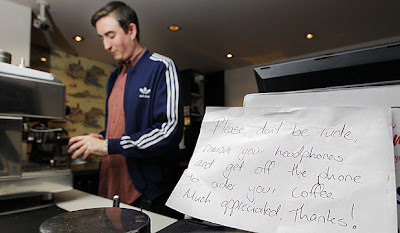 Please don't be rude,
remove your headphones
and get off the phone
to order your coffee
Much appreciated, Thanks!
adidas